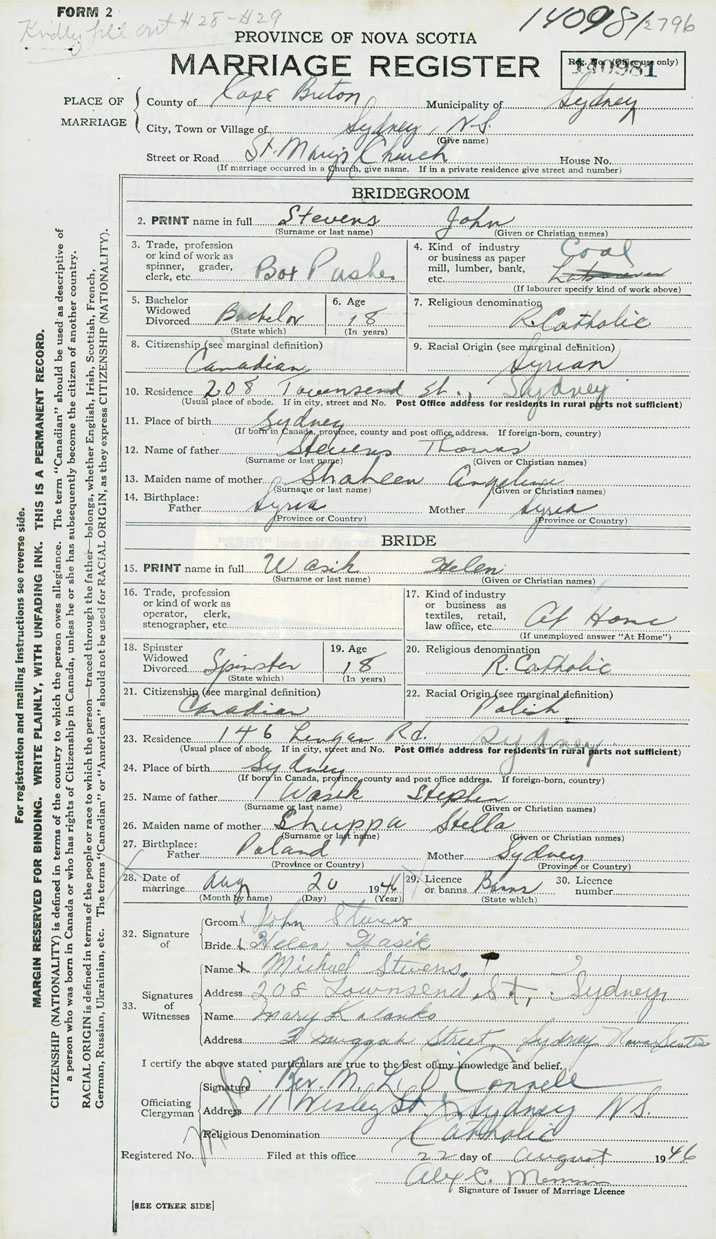 FORM 2
Kindly fill out #28-#29
140981 2796
PROVINCE OF NOVA SCOTIA
MARRIAGE REGISTER
Reg. No. (Office use only)
140981
PLACE OF MARRIAGE
County of Cape Breton Municipality of Sydney
City, Town or Village of Sydney, N.S.
(Give name)
Street or Road St. Mary's Church House No.
(If marriage occurred in a Church, give name. If in a private residence give street and number)
BRIDEGROOM
2. PRINT name in full Stevens John
(Surname or last name) (Given or Christian names)
3. Trade, profession or kind of work as spinner, grader, clerk, etc. Box Pusher
4. Kind of industry or business as paper mill, lumber, bank, etc. Coal
(If labourer specify kind of work above)
5. Bachelor Widowed Divorced Bachelor
(State which)
6. Age 18
(In years)
7. Religious denomination R. Catholic
8. Citizenship (see marginal definition) Canadian
9. Racial Origin (see marginal definition) Syrian
10. Residence 208 Townsend St., Sydney
(Usual place of abode. If in city, street and No. Post Office address for residents in rural parts not sufficient)
11. Place of birth Sydney
(If born in Canada, province, county and post office address. If foreign-born, country)
12. Name of father Stevens Thomas
(Surname or last name) (Given or Christian names)
13. Maiden name of mother Shaheen Angeline
(Surname or last name) (Given or Christian names)
14. Birthplace: Father Syria Mother Syria
(Province or Country) (Province or Country)
BRIDE
15. PRINT name in full Wasik Helen
(Surname or last name) (Given or Christian names)
16. Trade, profession or kind of work as operator, clerk, stenographer, etc.
17. Kind of industry or business as textiles, retail, law office, etc. At Home
(If unemployed answer "At Home")
18. Spinster Widowed Divorced Spinster
(State which)
19. Age 18
(In years)
20. Religious denomination R. Catholic
21. Citizenship (see marginal definition) Canadian
22. Racial Origin (see marginal definition) Polish
23. Residence 146 Lingan Rd. Sydney
(Usual place of abode. If in city, street and No. Post Office address for residents in rural parts not sufficient)
24. Place of birth Sydney
(If born in Canada, province, county and post office address. If foreign-born, country)
25. Name of father Wasik Stephen
(Surname or last name) (Given or Christian names)
26. Maiden name of mother Chuppa Stella
(Surname or last name) (Given or Christian names)
27. Birthplace: Father Poland Mother Sydney
(Province or Country) (Province or Country)
28. Date of marriage Aug 20 1946
(Month by name) (Day) (Year)
29. Licence or banns Banns
(State which)
30. Licence number
32. Signature of
Groom x John Stevens
Bride x Helen Wasik
33. Signatures of Witnesses
Name x Michael Stevens.
Address 208 Townsend St, Sydney
Name Mary Kalanko
Address Muggah Street, Sydney Nova Scotia
I certify the above stated particulars are true to the best of my knowledge and belief.
Officiating Clergyman
Signature Rev. M. L. O'Connell
Address 11 Wesley St. Sydney N.S.
Religious Denomination Catholic
Registered No. Filed at this office 22 day of August 1946
Alex C.
Signature of Issuer of Marriage Licence
[SEE OTHER SIDE]
For registration and mailing instructions see reverse side.
MARGIN RESERVED FOR BINDING. WRITE PLAINLY, WITH UNFADING INK. THIS IS A PERMANENT RECORD.
CITIZENSHIP (NATIONALITY) is defined in terms of the country to which the person owes allegiance. The term "Canadian" should be used as descriptive of
a person who was born in Canada or who has rights of Citizenship in Canada, unless he or she has subsequently become the citizen of another country.
RACIAL ORIGIN is defined in terms of the people or race to which the person—traced through the father—belongs, whether English, Irish, Scottish, French,
German, Russian, Ukrainian, etc. The terms "Canadian" or "American" should not be used for RACIAL ORIGIN, as they express CITIZENSHIP (NATIONALITY).